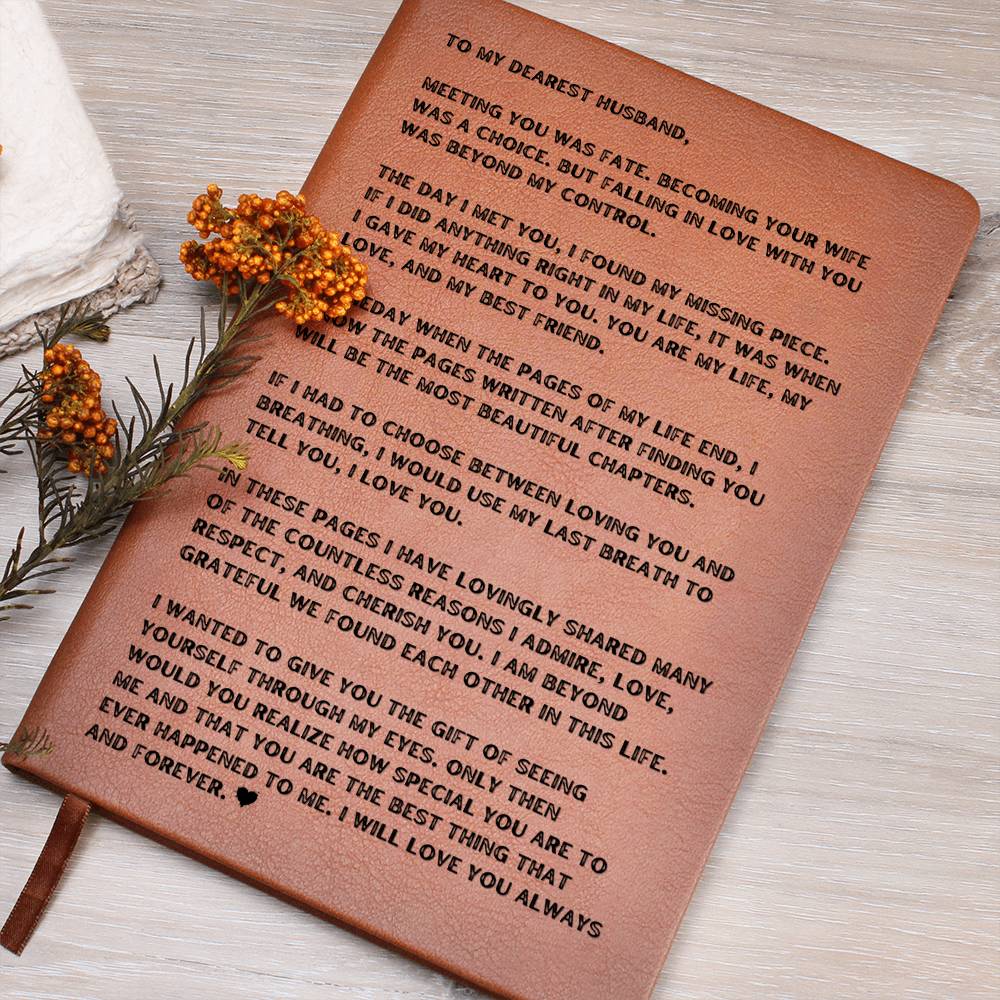 TO MY DEAREST HUSBAND,
MEETING YOU WAS FATE. BECOMING YOUR WIFE
WAS A CHOICE. BUT FALLING IN LOVE WITH YOU
WAS BEYOND MY CONTROL.
THE DAY I MET YOU, I FOUND MY MISSING PIECE.
IF I DID ANYTHING RIGHT IN MY LIFE, IT WAS WHEN
I GAVE MY HEART TO YOU. YOU ARE MY LIFE, MY
LOVE, AND MY BEST FRIEND.
WHEN THE PAGES OF MY LIFE END, I
THE PAGES WRITTEN AFTER FINDING YOU
WILL BE THE MOST BEAUTIFUL CHAPTERS.
IF I HAD TO CHOOSE BETWEEN LOVING YOU AND
BREATHING, I WOULD USE MY LAST BREATH TO
TELL YOU, I LOVE YOU.
IN THESE PAGES I HAVE LOVINGLY SHARED MANY
OF THE COUNTLESS REASONS I ADMIRE, LOVE,
RESPECT, AND CHERISH YOU. I AM BEYOND
GRATEFUL WE FOUND EACH OTHER IN THIS LIFE.
I WANTED TO GIVE YOU THE GIFT OF SEEING
YOURSELF THROUGH MY EYES. ONLY THEN
WOULD YOU REALIZE HOW SPECIAL YOU ARE TO
ME AND THAT YOU ARE THE BEST THING THAT
EVER HAPPENED TO ME. I WILL LOVE YOU ALWAYS
AND FOREVER. ♥